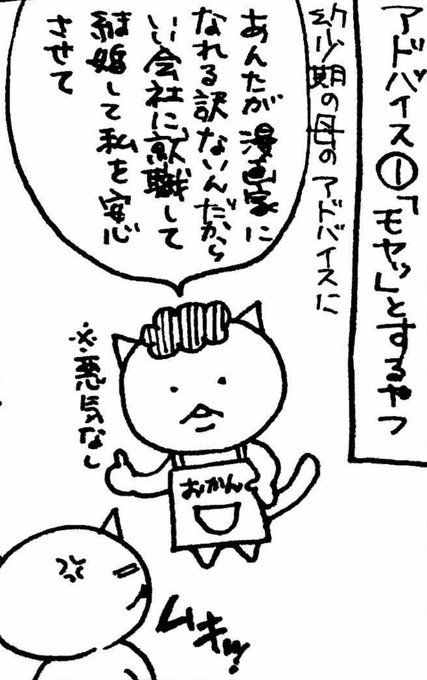 アドバイス①「モヤッ」とするやつ
幼少期の母のアドバイスに
あんたが漫画家に
なれる訳ないんだから
いい会社に就職して
結婚して私を安心
させて
※悪気なし
おかん
ムキッ!